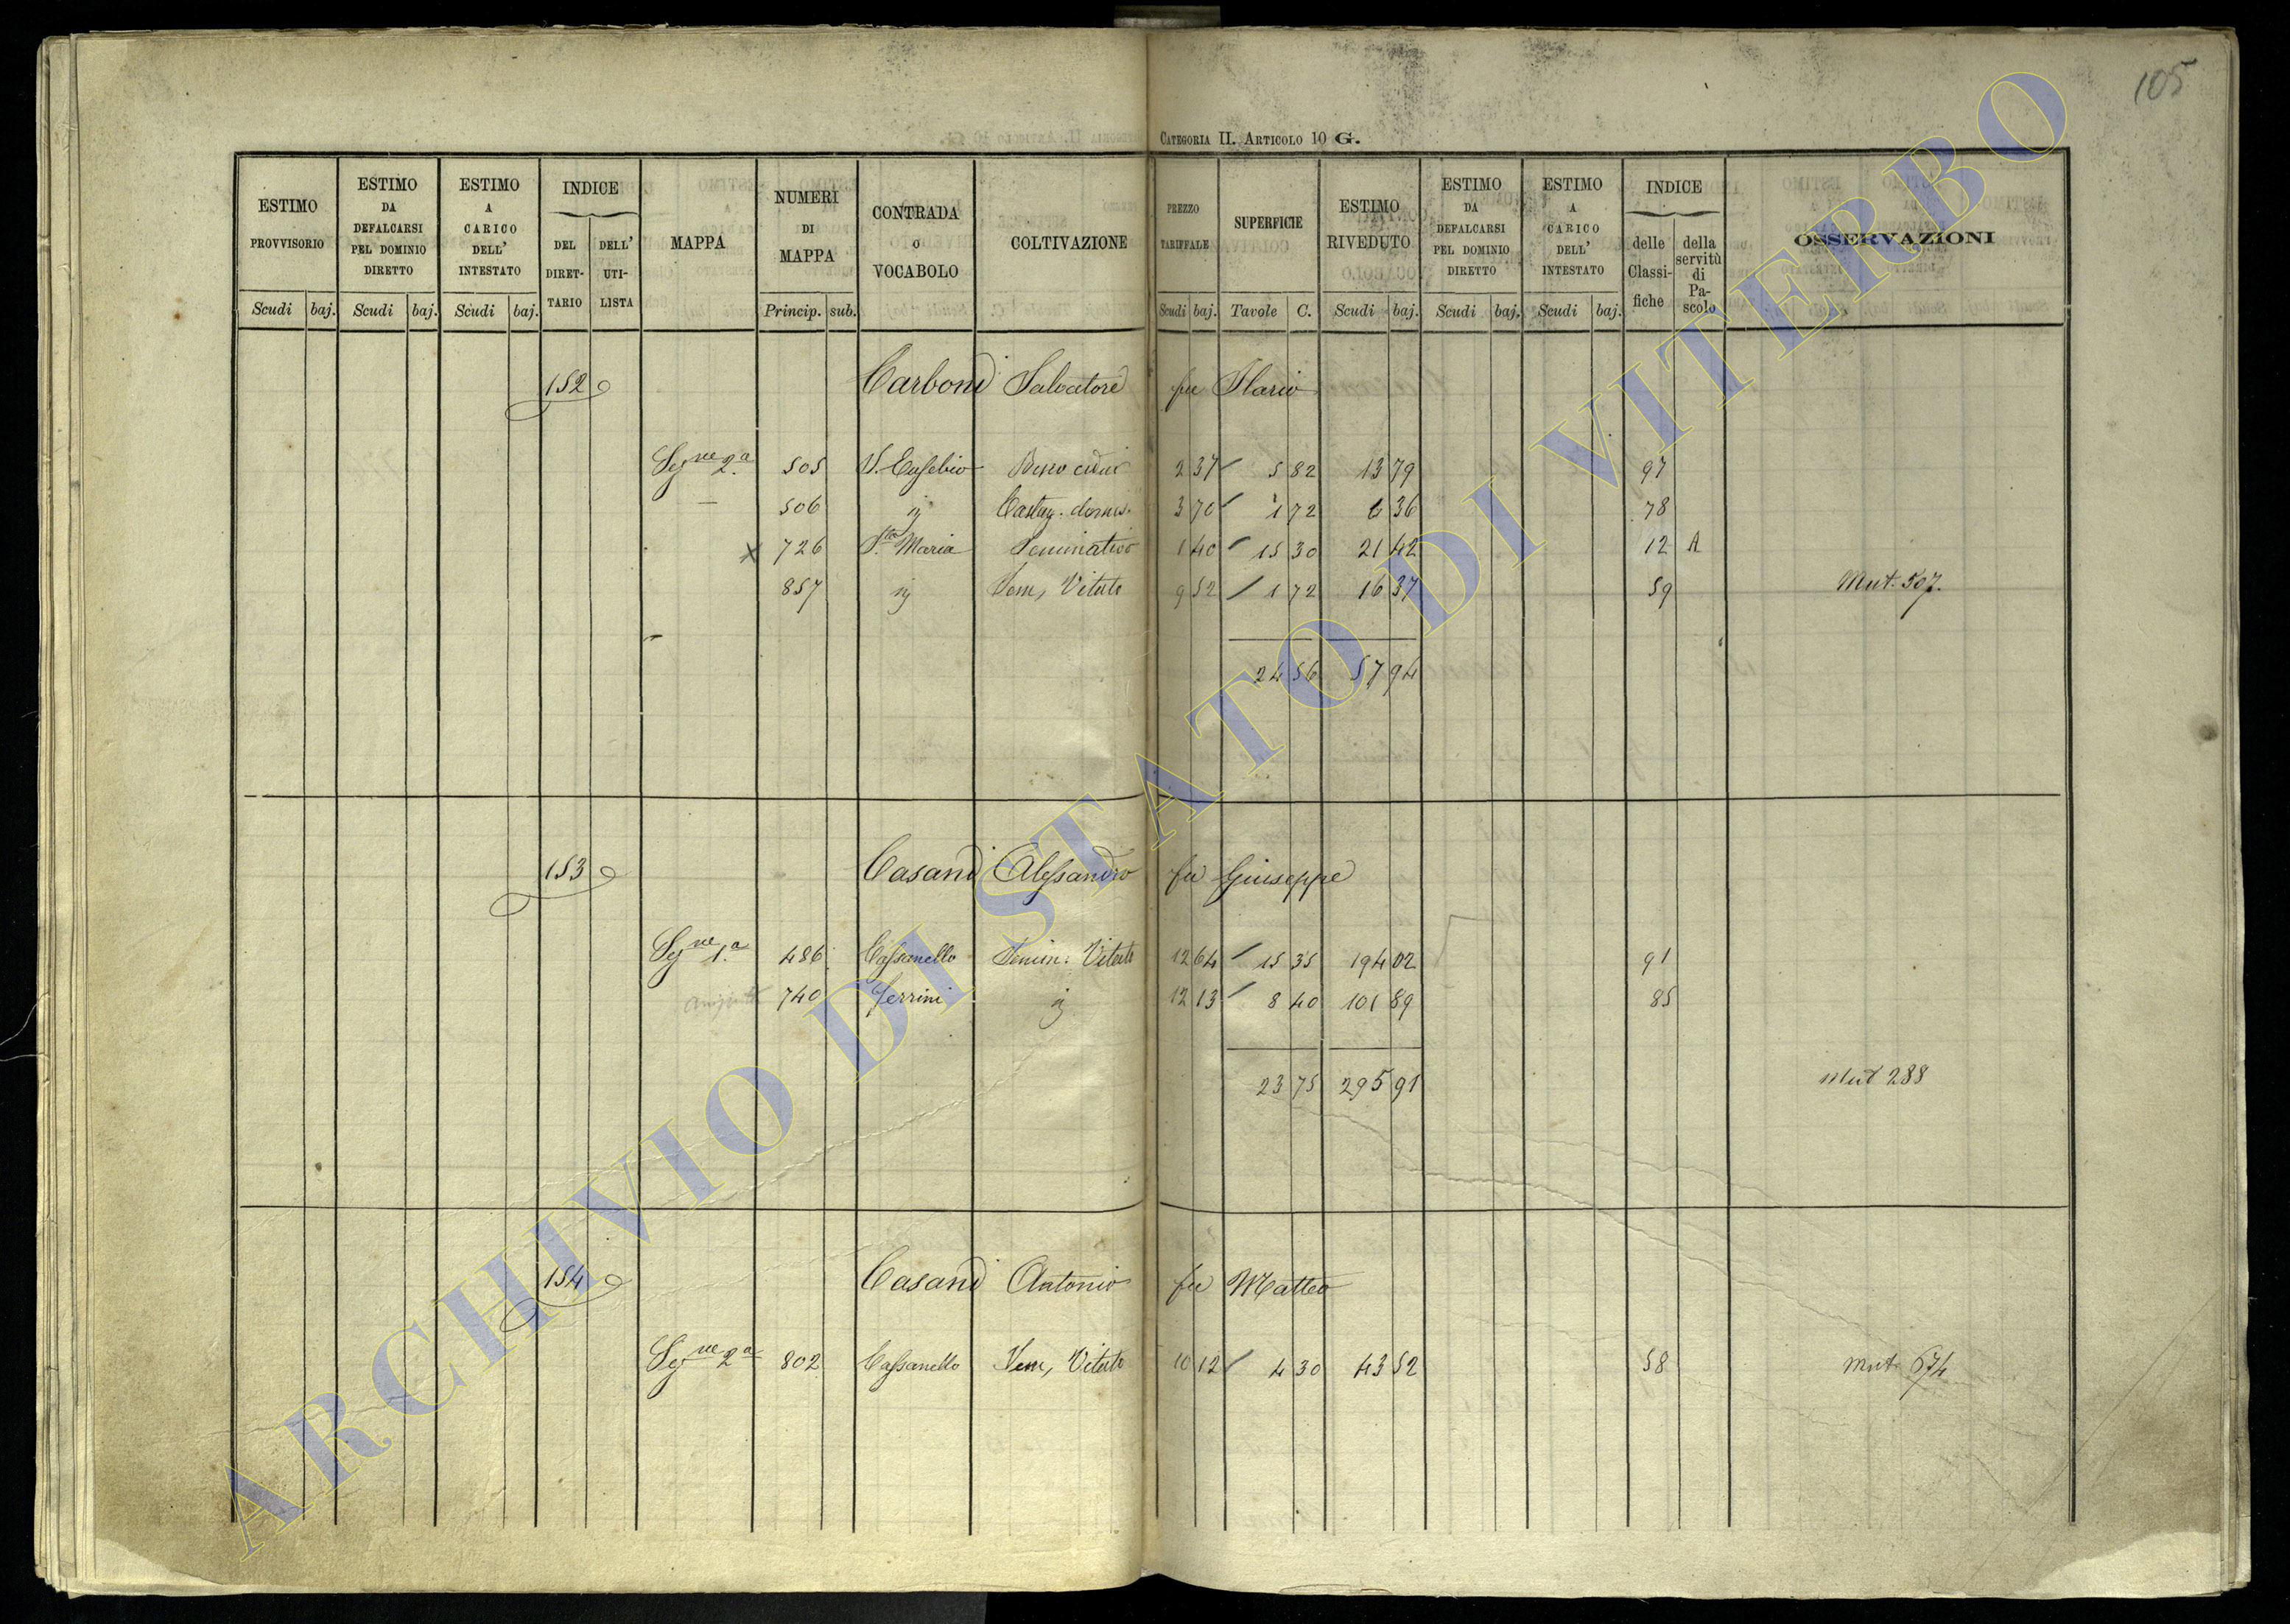 105
CATEGORIA II. ARTICOLO 10 G.
ESTIMO PROVVISORIO Scudi baj. ESTIMO DA DEFALCARSI PEL DOMINIO DIRETTO Scudi baj. ESTIMO A CARICO DELL' INTESTATO Scudi baj. INDICE DEL DIRET-TARIO DELL' UTI-LISTA MAPPA NUMERI DI MAPPA Princip. sub. CONTRADA o VOCABOLO COLTIVAZIONE PREZZO TARIFFALE Scudi baj. SUPERFICIE Tavole C. ESTIMO RIVEDUTO Scudi baj. ESTIMO DA DEFALCARSI PEL DOMINIO DIRETTO Scudi baj. ESTIMO A CARICO DELL' INTESTATO Scudi baj. INDICE delle Classi-fiche della servitù di Pa-scolo OSSERVAZIONI
152 Carboni Salvatore fu Ilario
Segne 2a 505 S. Eusebio Bosco ceduo 2 37 5 82 13 79 97
— 506 ij Castag. domes. 3 70 1 72 6 36 78
x 726 Sta Maria Seminativo 1 40 15 30 21 42 12 A
857 ij Sem, Vitato 9 52 1 72 16 37 59 Mut. 507.
24 56 57 94
153 Casani Alessandro fu Giuseppe
Segne 1a 486 Cassanello Semin: Vitato 12 64 15 35 194 02 91
740 Ferrini ij 12 13 8 40 101 89 85
23 75 295 91 Mut 288
154 Casani Antonio fu Matteo
Segne 2a 802 Cassanello Sem, Vitato 10 12 4 30 43 52 58 Mut 674
ARCHIVIO DI STATO DI VITERBO